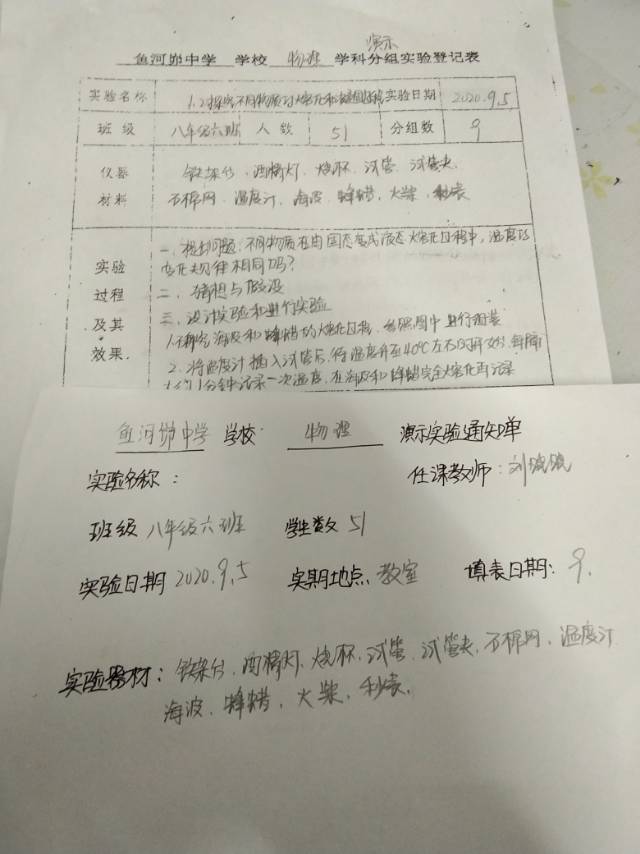 演示
鱼河峁中学 学校 物理 学科分组实验登记表
实验名称 1.2探究不同物质的熔化和凝固过程 实验日期 2020.9.5
班级 八年级六班 人数 51 分组数 9
仪器 铁架台、酒精灯、烧杯、试管、试管夹
材料 石棉网、温度计、海波、蜂蜡、火柴、秒表
实验过程及其效果
一、提出问题:不同物质在由固态变成液态熔化过程中,温度的
变化规律相同吗?
二、猜想与假设
三、设计实验和进行实验
1.研究海波和蜂蜡的熔化过程,参照图中进行组装
2.将温度计插入试管后,待温度升至40℃左右时开始,每隔
大约1分钟记录一次温度,在海波和蜂蜡完全熔化后记录
鱼河峁中学 学校 物理 演示实验通知单
实验名称: 任课教师:刘
班级 八年级六班 学生数 51
实验日期 2020.9.5 实期地点 教室 填表日期:9.
实验器材:铁架台、酒精灯、烧杯、试管、试管夹、石棉网、温度计
海波、蜂蜡、火柴、秒表.